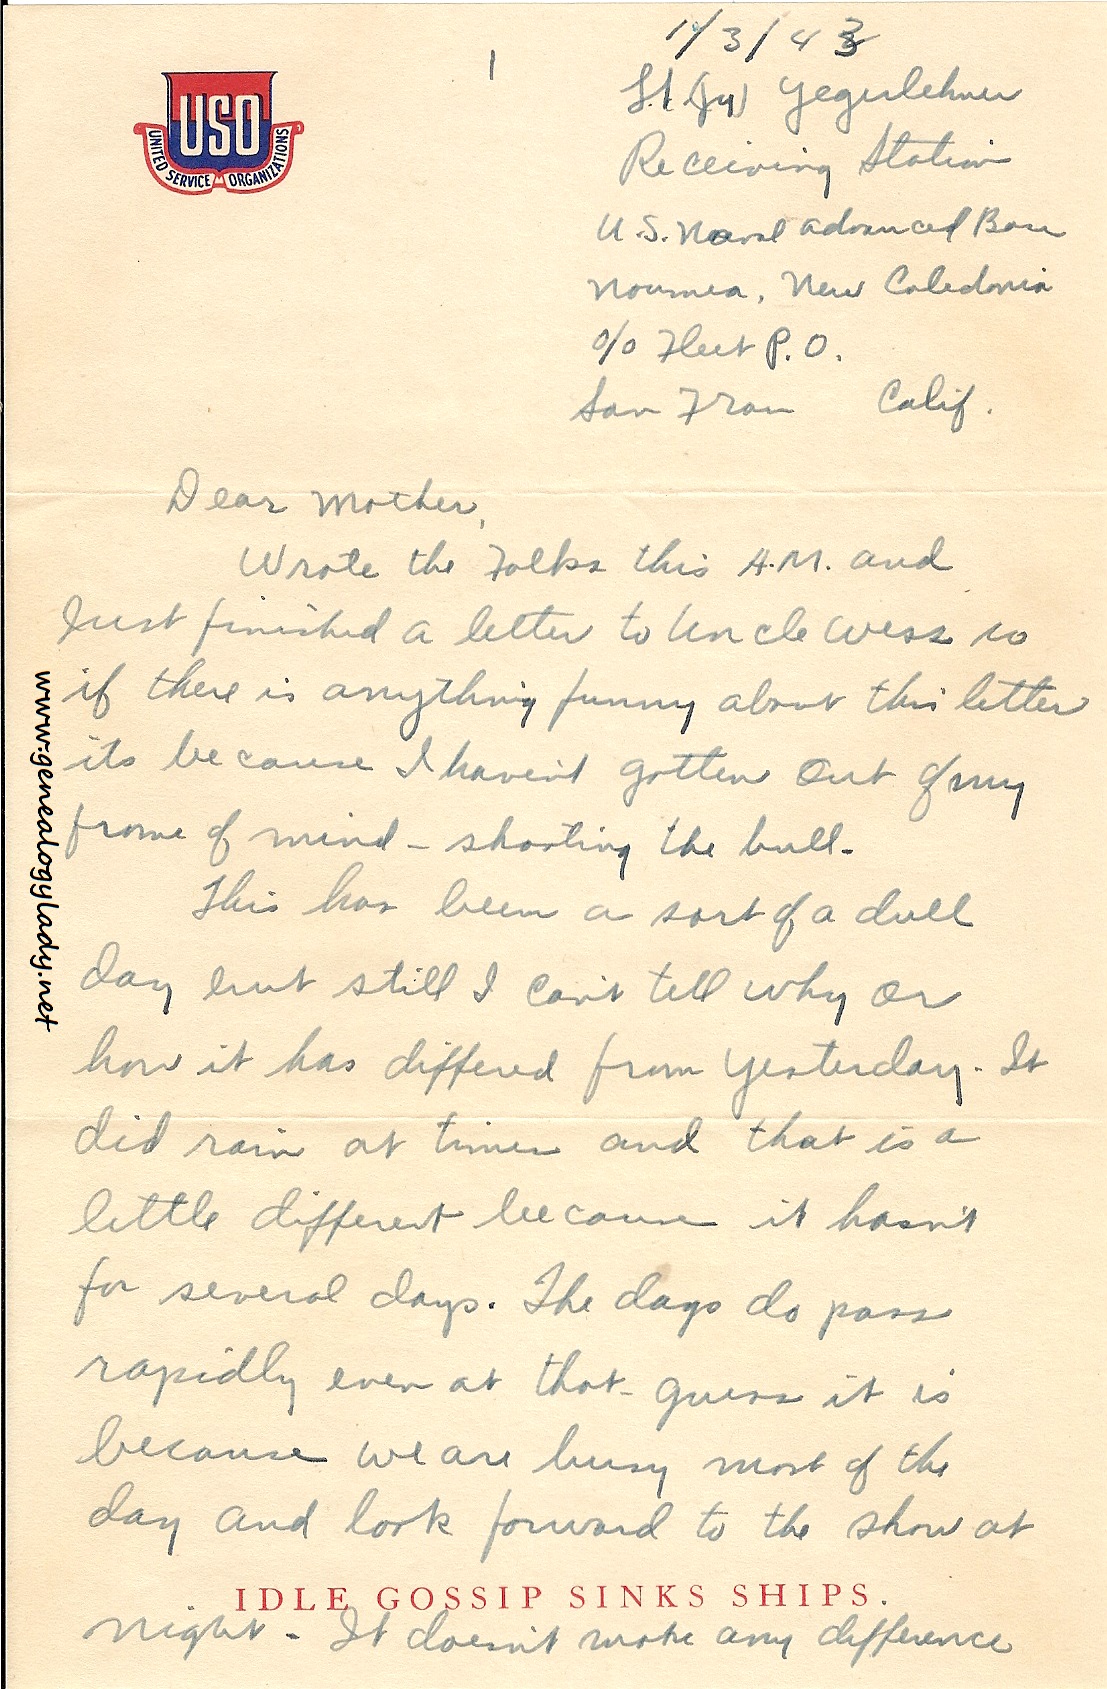 11/3/43
1
USO
UNITED SERVICE ORGANIZATIONS
Lt (jg) Yegerlehner
Receiving Station
U.S. Naval Advanced Base
Noumea, New Caledonia
c/o Fleet P.O.
San Fran Calif.
Dear Mother,
Wrote the Folks this A.M. and
Just finished a letter to Uncle Wess so
if there is anything funny about this letter
its because I haven't gotten out of my
frame of mind - shooting the bull.
This has been a sort of a dull
day but still I can't tell why or
how it has differed from yesterday. It
did rain at times and that is a
little different because it hasn't
for several days. The days do pass
rapidly even at that - guess it is
because we are busy most of the
day and look forward to the show at
IDLE GOSSIP SINKS SHIPS.
night - It doesn't make any difference
www.genealogylady.net